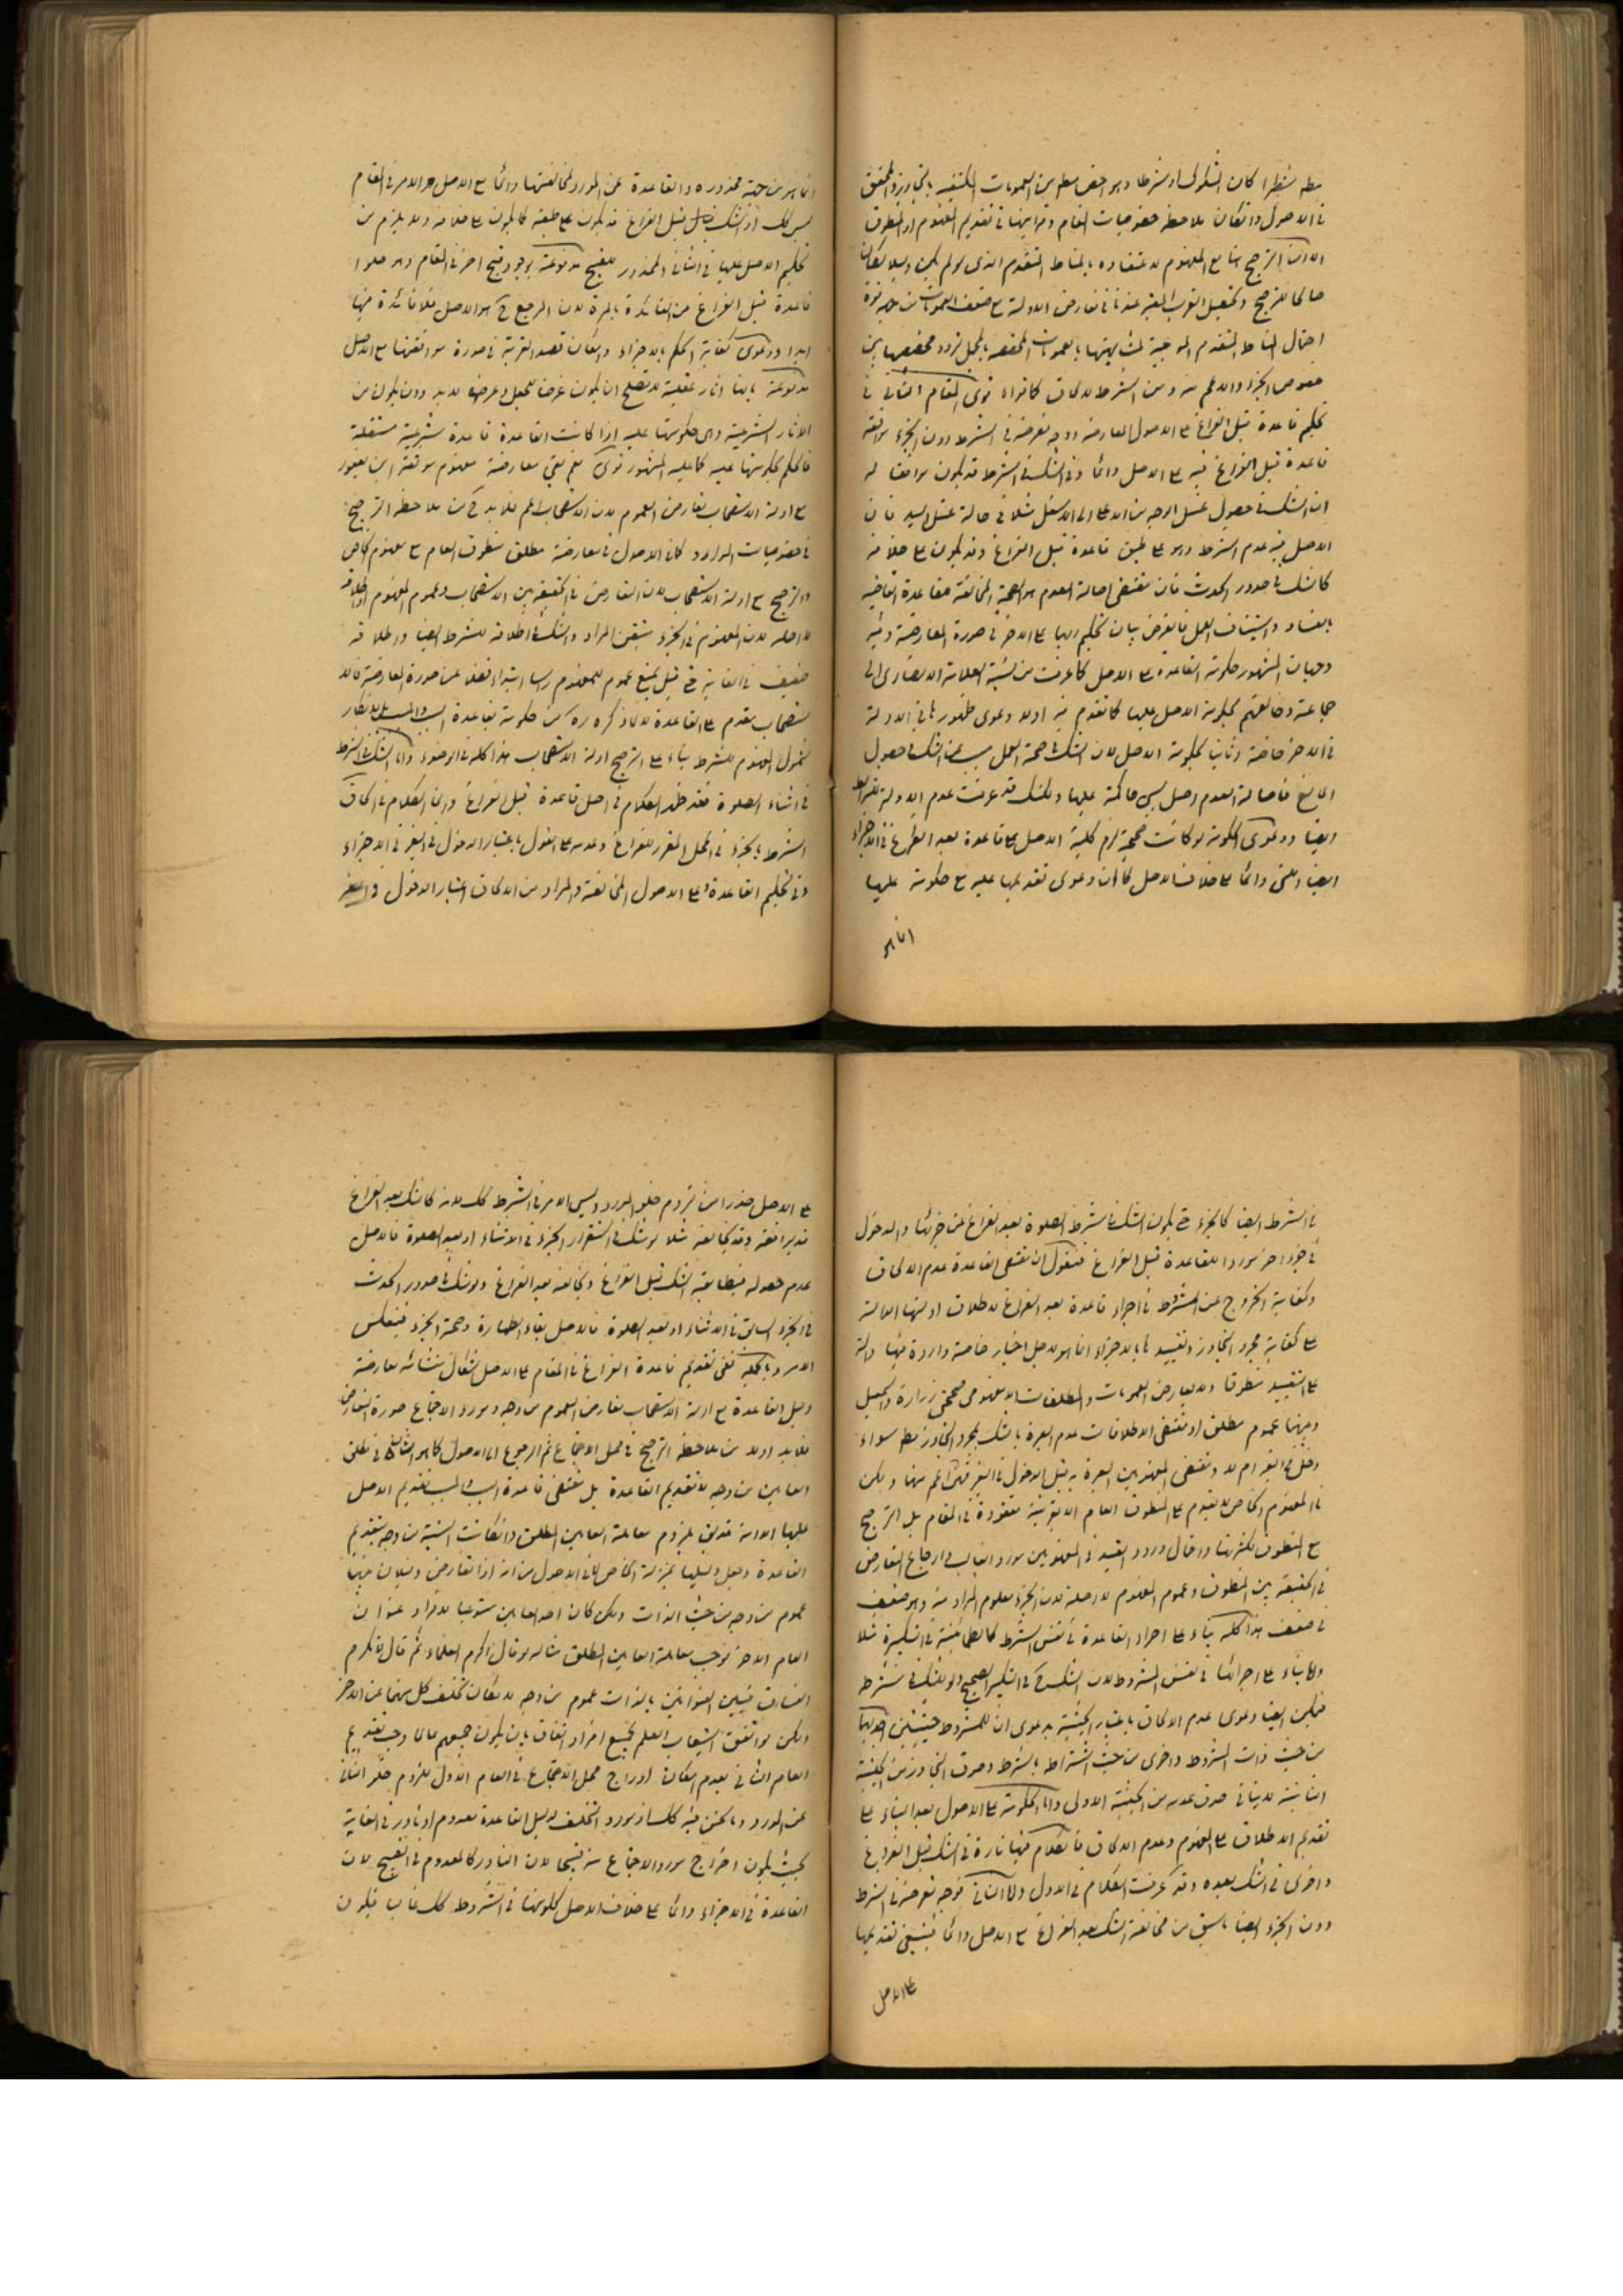 مطلقا شطرا كان المشكوك او شرطا وهو اخص مطلق من العمومات المكتفية بالتجاوز المحقق
في الاصول وان كان ملاحظة خصوصيات المقام وقرائنها في تقديم المفهوم او المنطوق
الا ان الترجيح هنا مع المفهوم لاعتضاده بالمناط المتقدم الذى لو لم يكن دليلا لكان
صالحا للترجيح وتحصيل القرب المعتبر عندنا في تعارض الادلة مع ضعف العمومات من جهة قوة
احتمال المناط المتقدم الموجبة لشباهتها بالعمومات المخصصة بالمجمل تردد مخصصها بين
خصوص الجزء والاعم منه ومن الشرط لالحاق كما تراه قوى المقام الثاني في
تحكيم قاعدة قبل الفراغ على الاصول المعارضة ووجه تعرضه في الشرط دون الجزء موافقة
قاعدة قبل الفراغ فيه على الاصل دائما وفي الشك في الشرط قد يكون موافقا له
ان الشك في حصول غسل الوجه من الاعلى الى الاسفل مثلا في حالة غسل اليد فان
الاصل فيه عدم الشرط وهو على طبق قاعدة قبل الفراغ وقد يكون على خلافه
كالشك في صدور الحدث فان مقتضى اصالة العدم هو الصحة المخالفة لقاعدة القاضية
بالفساد واستيناف العمل فالغرض بيان تحكيم ايها على الاخر في صورة المعارضة وفيه
وجهان المشهور حكومة القاعدة على الاصل كما عرفت من نسبة العلامة الانصارى الى
جماعة وخالفهم بحكومة الاصل عليها كما تقدم فيه اولا دعوى ظهور ما في الادلة
في الاخر خاصة وثانيا بحكومة الاصل لان الشك في صحة العمل مسبب عن الشك في حصول
المانع فاصالة العدم اصل ليس حاكمة عليها ولكنك قد عرفت عدم الادلة للشرائط
ايضا ودعوى الحكومة لو كانت صحيحة لزم كلية الاصل على قاعدة بعد الفراغ في الاجزاء
ايضا والتى دائما على خلاف الاصل كما ان دعوى تقديمها عليه مع حكومة عليها
انما هو
انما هو من جهة محذوره والقاعدة عن المورد لمخالفتها دائما مع الاصل والامر في المقام
ليس كك اذ الشك قبل الفراغ قد يكون على طبقه كما يكون على خلافه ولا يلزم من
تحكيم الاصل عليها في الثانى المحذور للقبيح مدفوعة بوجود قبيح اخر في المقام وهو خلو
قاعدة قبل الفراغ عن الفائدة بالمرة لان المرجع ح هو الاصل فلا فائدة فيها
ابدا ودعوى كفاية الحكم بالاجزاء وامكان قصد القربة في صورة موافقتها مع الاصل
مدفوعة بانها اثار عقلية لا تصلح ان يكون غرضا للجعل وغرضه لا بد وان يكون من
الاثار الشرعية والى حكومتها عليه اذا كانت القاعدة قاعدة شرعية مستقلة
فالحكم بحكومتها عليه كما عليه المشهور قوى نعم بقى معارضة مفهوم موثقة ابن ابي يعفور
مع ادلة الاستصحاب تعارض العموم لان الاستصحاب اعم فلا بد ح من ملاحظة الترجيح
في خصوصيات الموارد كما في الاصول في معارضة مطلق منطوق العام مع مفهوم الخاص
والترجيح مع ادلة الاستصحاب لان التعارض في الحقيقة بين الاستصحاب وعموم المفهوم اطلاقه
لا اصله لان المفهوم في الجزء متيقن المراد والشك في اطلاقه للشرط ايضا واطلاقه
ضعيف في الغاية حتى قيل بمنع عموم للمفهوم راسا ابتداء فضلا عن صورة المعارضة فالا
ستصحاب يقدم على القاعدة لا لما ذكره ره من حكومة بقاعدة السبب والمسبب بل لانكار
شمول المفهوم للشرط بناء على الترجيح ادلة الاستصحاب هذا كله في الوضوء واما الشك في الشرط
في اثناء الصلوة فقد ظهر الكلام في اصل قاعدة قبل الفراغ وان الكلام في الحاق
الشرط بالجزء في المحل المقرر للفراغ وعدمه على القول باعتبار الدخول في الغير في الاجزاء
وفي تحكيم القاعدة على الاصول المخالفة والمراد من الالحاق اعتبار الدخول في الغير
في الشرط ايضا كالجزء حتى يكون الشك في شرط الصلوة بعد الفراغ عن جزئها والدخول
في جزء اخر موردا للقاعدة قبل الفراغ فنقول ان مقتضى القاعدة عدم الالحاق
وكفاية الخروج عن المشروط في اجراء قاعدة بعد الفراغ لاطلاق ادلتها الدالة
على كفاية مجرد التجاوز وتقييدها بالاجزاء انما هو لاجل اخبار خاصة واردة فيها دالة
على التقييد منطوقا ولا يعارض العمومات والمطلقات الا مفهومى صحيحتى زرارة واسمعيل
وبينهما عموم مطلق اذ مقتضى الاطلاقات عدم العبرة بالشك بمجرد التجاوز مطلقا سواء
دخل في الغير ام لا ومقتضى المفهومين العبرة به قبل الدخول في الغير فهى اعم منها ولكن
في المفهوم الخاص لا يقدم على المنطوق العام الا بقرينة مفقودة في المقام بل الترجيح
مع المنطوق لكثرتها واحتمال ورود القيد في المفهومين مورد الغالب فارجاع التعارض
في الحقيقة بين المنطوق وعموم المفهوم لا اصله لان الجزء معلوم المراد منه وهو ضعيف
في ضعف هذا كله بناء على اجراء القاعدة في نفس الشرط كالطمأنينة في التكبيرة مثلا
واما بناء على اجرائها في نفس المشروط لان الشك ح في التكبير الصحيح والشك في شرطه
فيمكن ايضا دعوى عدم الالحاق باعتبار الحيثية بدعوى ان للمشروط حيثيتين احديهما
من حيث ذات المشروط واخرى من حيث اشتراطه بالشرط وصدق التجاوز من الحيثية
الثانية لا ينافي صدق عدمه من الحيثية الاولى واما الحكومة على الاصول بعد البناء على
تقديم الاطلاق على المفهوم وعدم الالحاق فالكلام فيها تارة في الشك قبل الفراغ
واخرى في الشك بعده وقد عرفت الكلام في الاول واما الثانى فوجه تعرضه في الشرط
دون الجزء ايضا ما سبق من مخالفة الشك بعد الفراغ مع الاصل دائما فينبغى تقديمها
على الاصل
على الاصل حذرا من لزوم خلو المورد وليس الامر في الشرط كك لانه كالشك بعد الفراغ
قد يوافقه وقد يخالفه مثلا لو شك في استقرار الجزء في الاثناء او بعد الصلوة فالاصل
عدم حصوله فيطابقه الشك قبل الفراغ ويخالفه بعد الفراغ ولو شك في صدور الحدث
في الجزء السابق في الاثناء او بعد الصلوة فالاصل بقاء الطهارة وصحة الجزء فينعكس
الامر وبالجملة ففى تقديم قاعدة الفراغ في المقام على الاصل اشكال منشائه معارضة
دليل القاعدة مع ادلة الاستصحاب تعارض العموم من وجه ومورد الاجتماع صورة التعارض
فلا بد اولا من ملاحظة الترجيح في محل الاجتماع ثم الرجوع الى الاصول كما هو الشان في مطلق
العامين من وجه لا تقديم القاعدة بل مقتضى قاعدة السبب والمسبب تقديم الاصل
عليها الا انه قد يق بلزوم معاملة العامين المطلق وان كانت النسبة من وجه بتقديم
القاعدة وجعل دليلها بمنزلة الخاص كما في الاصول من انه اذا تعارض دليلان بينهما
عموم من وجه من حيث الذات ولكن كان احد العامين مستوعبا لافراد عنوان
العام الاخر فوجب معاملة العامين المطلق مثاله لو قال اكرم العلماء ثم قال لا تكرم
الفساق فبين العنوانين بالذات عموم من وجه لامكان تخلف كل منهما عن الاخر
ولكن لو اتفق استيعاب العلم لجميع افراد الفساق بان يكون جميعهم عالما وجب تقديم
العام الثانى بعدم امكان ادراج محل الاجتماع في العام الاول للزوم خلو الثانى
عن المورد وما نحن فيه كك اذ مورد التخلف لدليل القاعدة معدوم او نادر في الغاية
بحيث يكون اخراج مورد الاجتماع منه قبيحا لان النادر كالمعدوم في القبيح لان
القاعدة في الاجزاء دائما على خلاف الاصل لكونها في الشروط كك غالبا فيكون